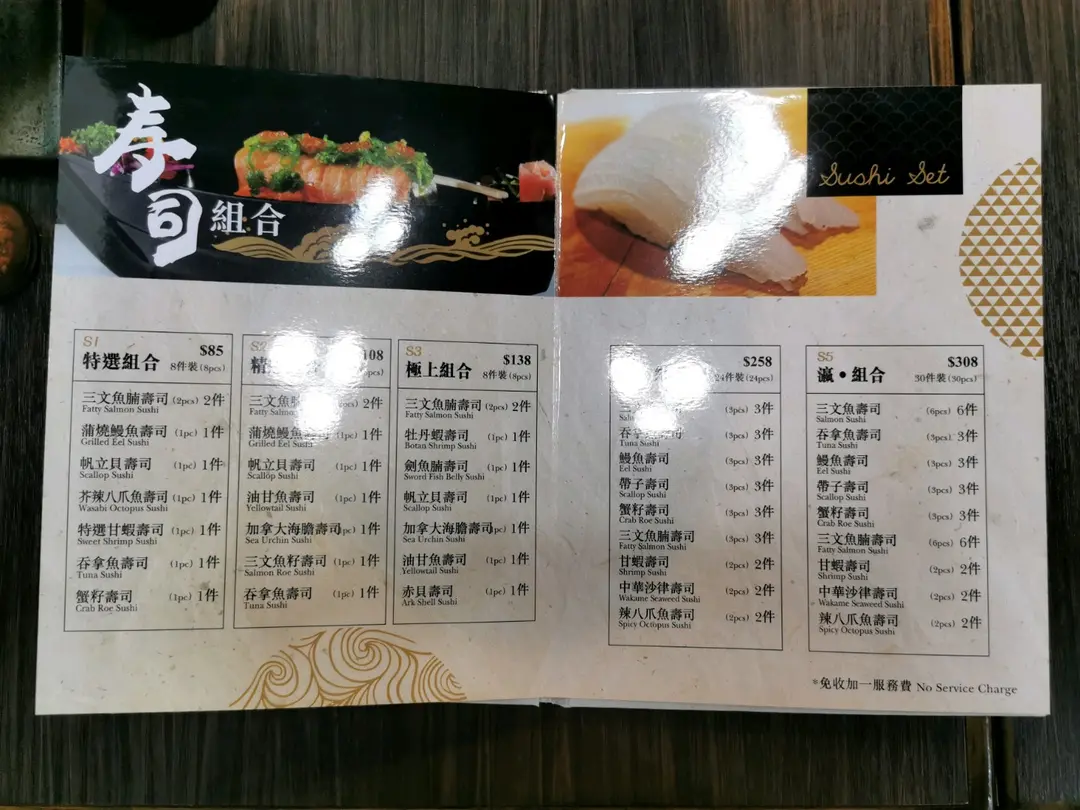 寿司組合
Sushi Set
S1
特選組合 $85
8件裝 (8pcs)
三文魚腩壽司 (2pcs) 2件
Fatty Salmon Sushi
蒲燒鰻魚壽司 (1pc) 1件
Grilled Eel Sushi
帆立貝壽司 (1pc) 1件
Scallop Sushi
芥辣八爪魚壽司 (1pc) 1件
Wasabi Octopus Sushi
特選甘蝦壽司 (1pc) 1件
Sweet Shrimp Sushi
吞拿魚壽司 (1pc) 1件
Tuna Sushi
蟹籽壽司 (1pc) 1件
Crab Roe Sushi
S2
精
108
三文魚 2件
Fatty
蒲燒鰻魚壽司 (1pc) 1件
Grilled Eel Sushi
帆立貝壽司 (1pc) 1件
Scallop Sushi
油甘魚壽司 (1pc) 1件
Yellowtail Sushi
加拿大海膽壽司 1件
Sea Urchin Sushi
三文魚籽壽司 (1pc) 1件
Salmon Roe Sushi
吞拿魚壽司 (1pc) 1件
Tuna Sushi
S3
極上組合 $138
8件裝 (8pcs)
三文魚腩壽司 (2pcs) 2件
Fatty Salmon Sushi
牡丹蝦壽司 (1pc) 1件
Botan Shrimp Sushi
劍魚腩壽司 (1pc) 1件
Sword Fish Belly Sushi
帆立貝壽司 (1pc) 1件
Scallop Sushi
加拿大海膽壽司 1件
Sea Urchin Sushi
油甘魚壽司 (1pc) 1件
Yellowtail Sushi
赤貝壽司 (1pc) 1件
Ark Shell Sushi
$258
24件裝 (24pcs)
(3pcs) 3件
(3pcs) 3件
Tuna Sushi
鰻魚壽司 (3pcs) 3件
Eel Sushi
帶子壽司 (3pcs) 3件
Scallop Sushi
蟹籽壽司 (3pcs) 3件
Crab Roe Sushi
三文魚腩壽司 (3pcs) 3件
Fatty Salmon Sushi
甘蝦壽司 (2pcs) 2件
Shrimp Sushi
中華沙律壽司 (2pcs) 2件
Wakame Seaweed Sushi
辣八爪魚壽司 (2pcs) 2件
Spicy Octopus Sushi
S5
瀛•組合 $308
30件裝 (30pcs)
三文魚壽司 (6pcs) 6件
Salmon Sushi
吞拿魚壽司 (3pcs) 3件
Tuna Sushi
鰻魚壽司 (3pcs) 3件
Eel Sushi
帶子壽司 (3pcs) 3件
Scallop Sushi
蟹籽壽司 (3pcs) 3件
Crab Roe Sushi
三文魚腩壽司 (6pcs) 6件
Fatty Salmon Sushi
甘蝦壽司 (2pcs) 2件
Shrimp Sushi
中華沙律壽司 (2pcs) 2件
Wakame Seaweed Sushi
辣八爪魚壽司 (2pcs) 2件
Spicy Octopus Sushi
*免收加一服務費 No Service Charge